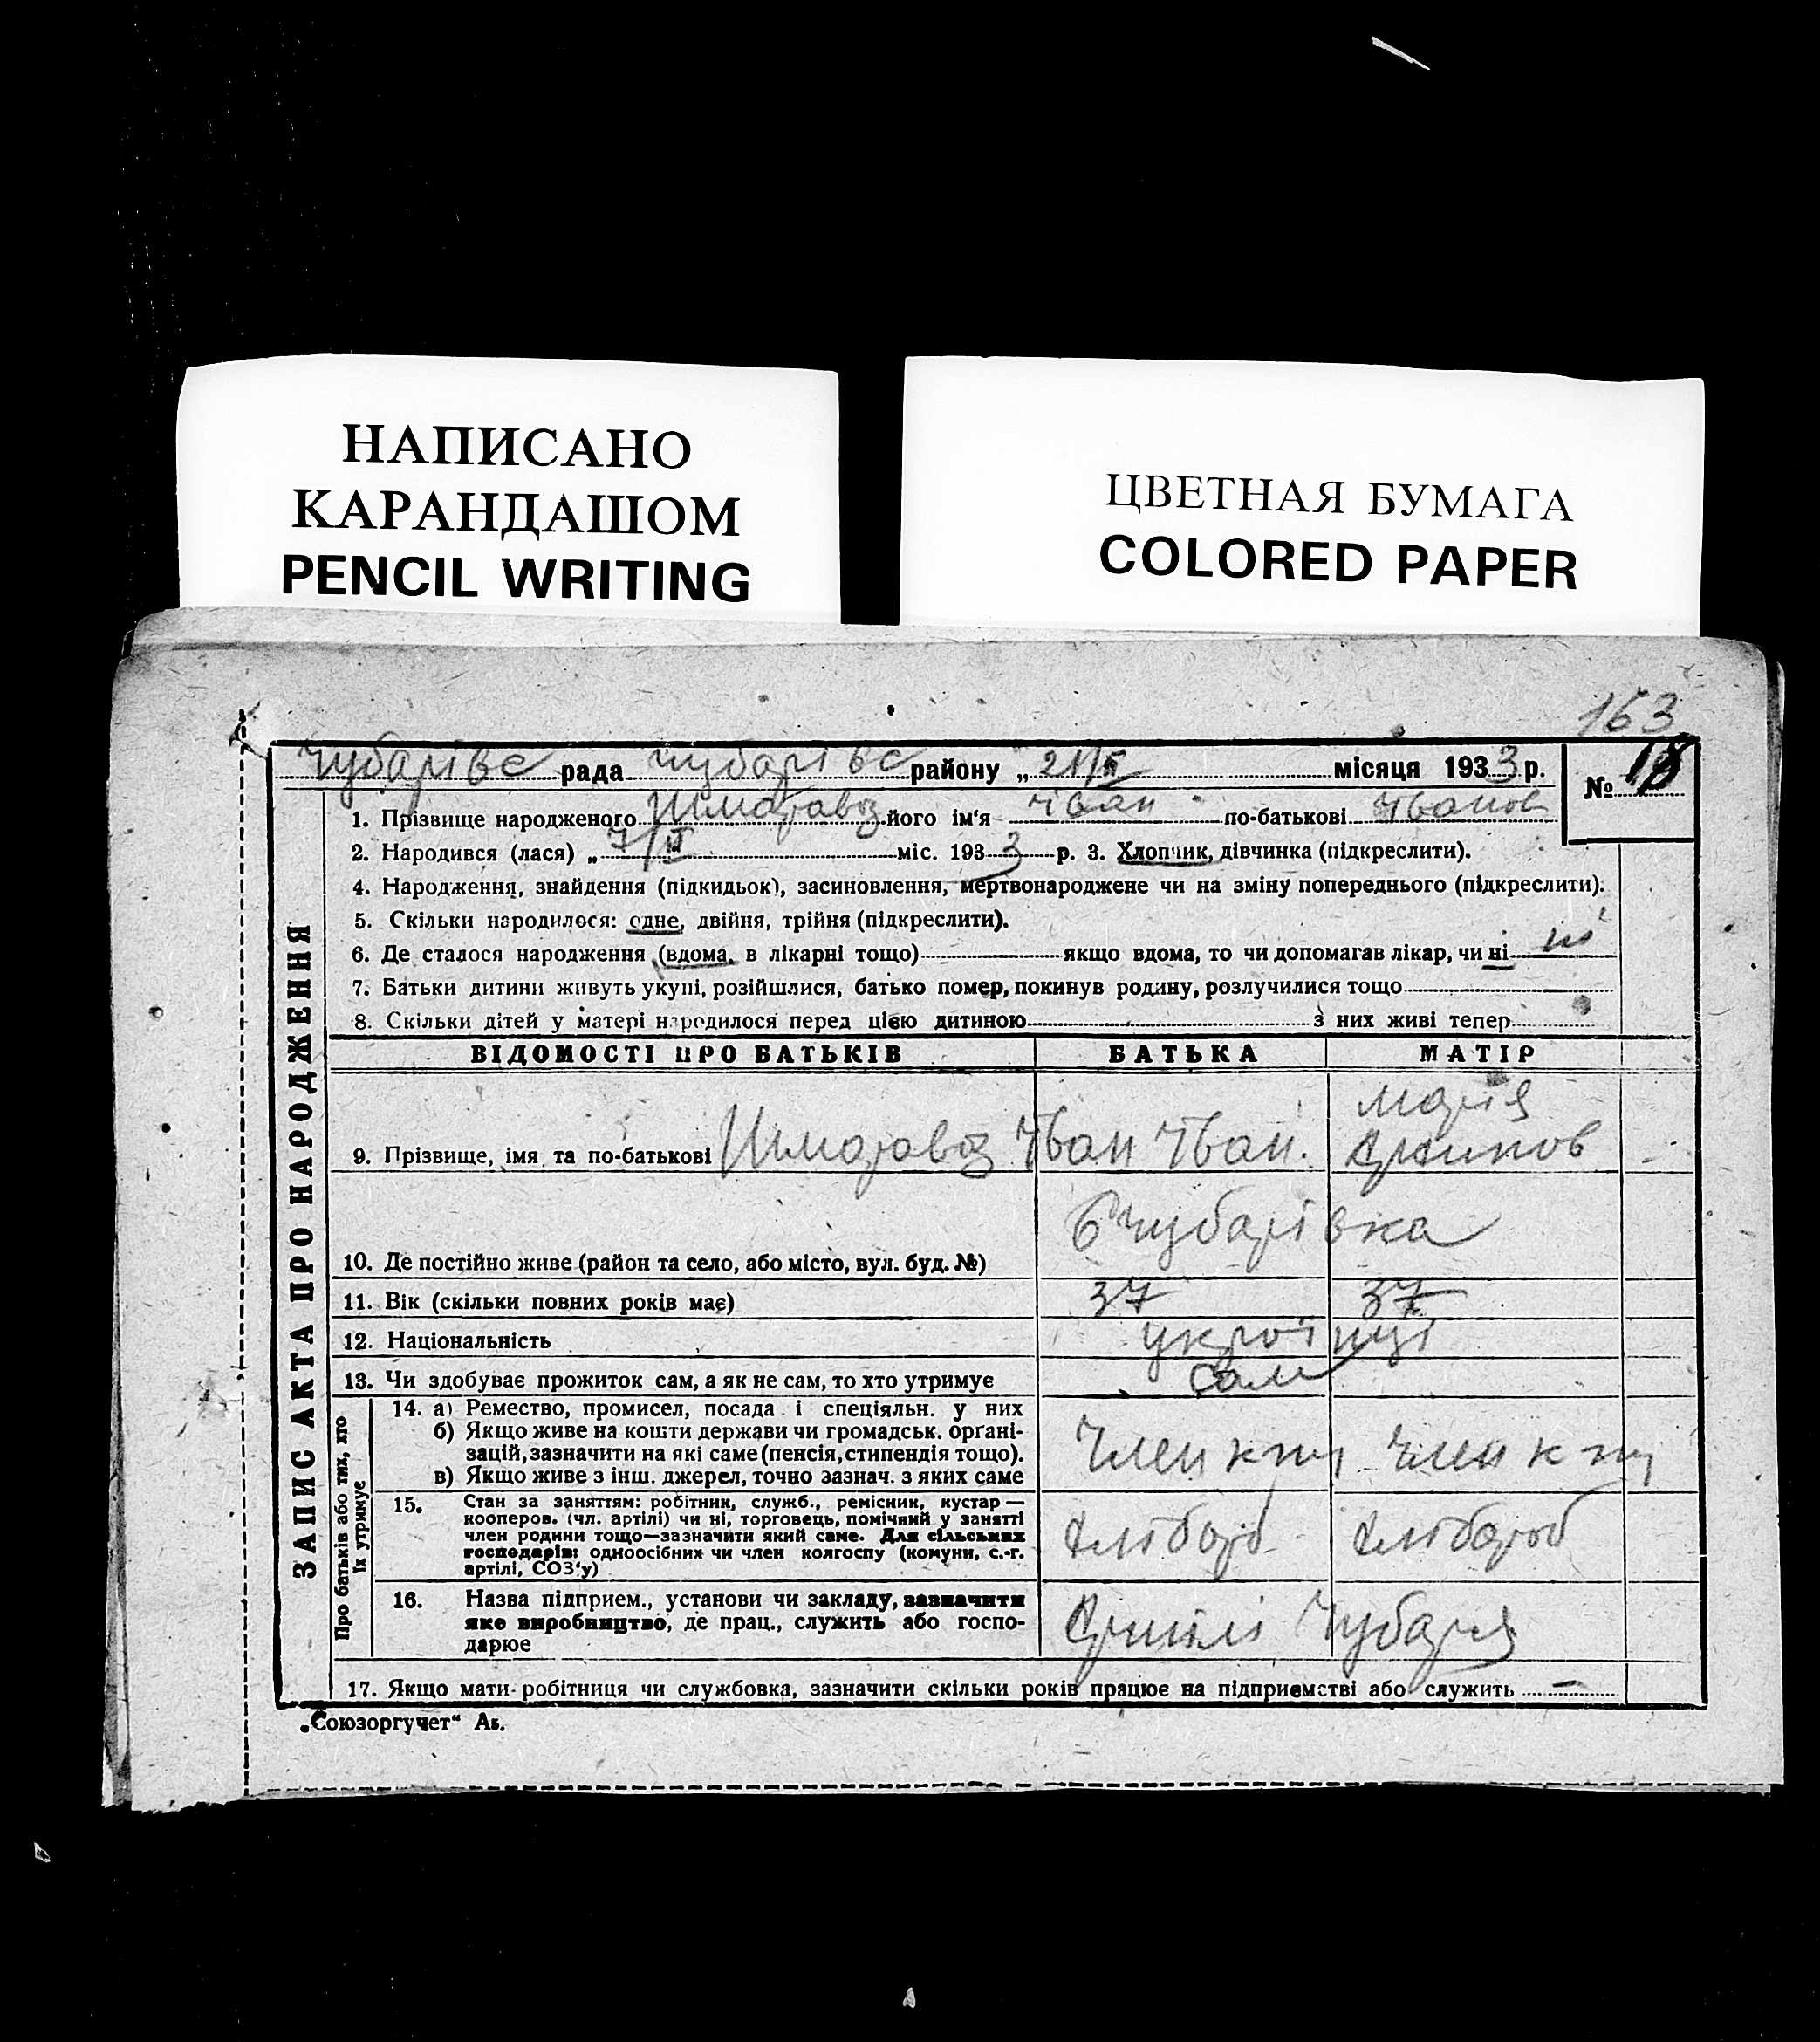 НАПИСАНО
КАРАНДАШОМ
PENCIL WRITING
ЦВЕТНАЯ БУМАГА
COLORED PAPER
163
Чубарівс рада Чубарівс району „ 21/II місяця 1933 р.
№ 18
1. Прізвище народженого його ім'я Іван по-батькові Іванов
2. Народився (лася) „ 7/II міс. 1933 р. 3. Хлопчик, дівчинка (підкреслити).
4. Народження, знайдення (підкидьок), засиновлення, мертвонароджене чи на зміну попереднього (підкреслити):
5. Скільки народилося: одне, двійня, трійня (підкреслити).
6. Де сталося народження (вдома, в лікарні тощо) якщо вдома, то чи допомагав лікар, чи ні ні
7. Батьки дитини живуть укупі, розійшлися, батько помер, покинув родину, розлучилися тощо
8. Скільки дітей у матері народилося перед цією дитиною з них живі тепер
ЗАПИС АКТА ПРО НАРОДЖЕННЯ
ВІДОМОСТІ ПРО БАТЬКІВ БАТЬКА МАТІР
Марія
9. Прізвище, імя та по-батькові Іван Іван. Архипов
10. Де постійно живе (район та село, або місто, вул. буд. №) Чубарівка
11. Вік (скільки повних років має) 37 37
12. Національність українці
13. Чи здобуває прожиток сам, а як не сам, то хто утримує сам
Про батьків або тих, хто
їх утримує
14. а) Ремество, промисел, посада і спеціяльн. у них
б) Якщо живе на кошти держави чи громадськ. орґані-
зацій, зазначити на які саме (пенсія, стипендія тощо).
в) Якщо живе з інш. джерел, точно зазнач. з яких саме
Член Член
15. Стан за заняттям: робітник, служб., ремісник, кустар —
кооперов. (чл. артілі) чи ні, торговець, помічний у занятті
член родини тощо—зазначити який саме. Для сільських
господарів: одноосібних чи член колгоспу (комуни, с.-г.
артілі, СОЗ'у)
хлібороб хлібороб
16. Назва підприєм., установи чи закладу, зазначити
яке виробництво, де прац., служить або госпо-
дарює
Артілі Чубаря
17. Якщо мати-робітниця чи службовка, зазначити скільки років працює на підприємстві або служить —
„Союзоргучет“ А5.